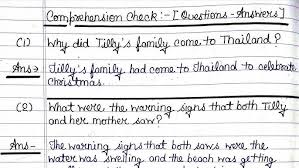 Comprehension Check :- [Questions - Answers]
(1) Why did Tilly's family come to Thailand ?
Ans → Tilly's family had come to Thailand to celebrate
Christmas.
(2) What were the warning signs that both Tilly
and her mother saw?
Ans - The warning signs that both saws were the
water was swelling, and the beach was getting